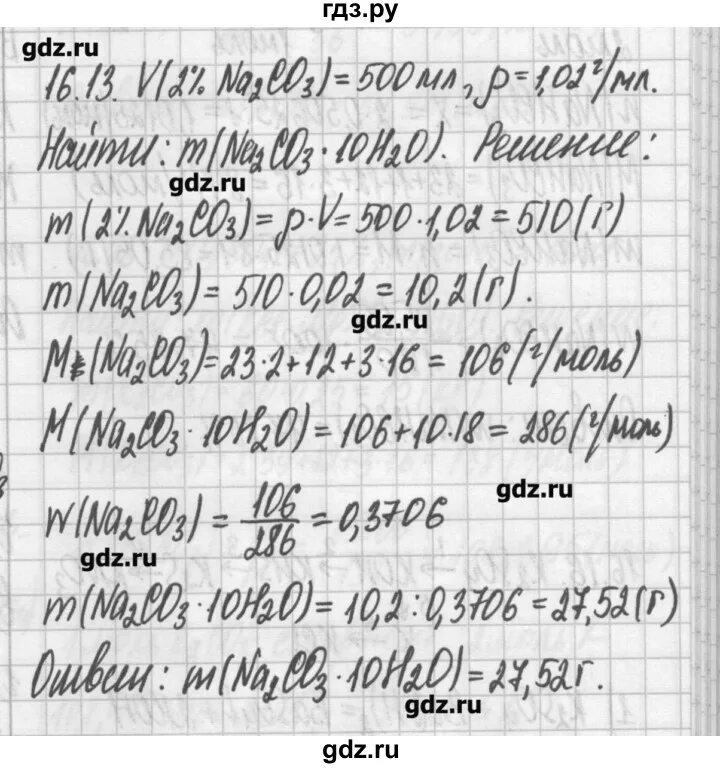 гдз.ру
gdz.ru
16.13. V(2% Na₂CO₃) = 500 мл, ρ = 1,02 г/мл.
Найти: m(Na₂CO₃ · 10H₂O). Решение:
gdz.ru
m(2% Na₂CO₃) = ρ·V = 500·1,02 = 510 (г)
m(Na₂CO₃) = 510·0,02 = 10,2 (г).
gdz.ru
M(Na₂CO₃) = 23·2+12+3·16 = 106 (г/моль)
M(Na₂CO₃ · 10H₂O) = 106+10·18 = 286 (г/моль)
gdz.ru
W(Na₂CO₃) = 106/286 = 0,3706
gdz.ru
m(Na₂CO₃ · 10H₂O) = 10,2 : 0,3706 = 27,52 (г)
Ответ: m(Na₂CO₃ · 10H₂O) = 27,52 г.
gdz.ru
gdz.ru